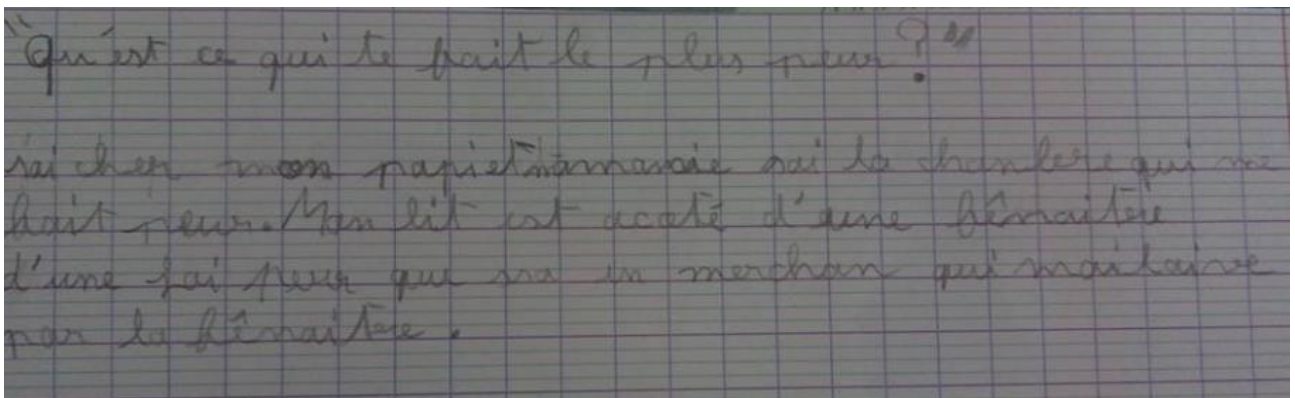 "Qu'est ce qui te fait le plus peur?"
sai cher mon papie mamanie sai la chambere qui me
fait peur. Mon lit est acoté d'une fênaitere
d'une fai peur que sra un merchan qui
par la fênaitere.